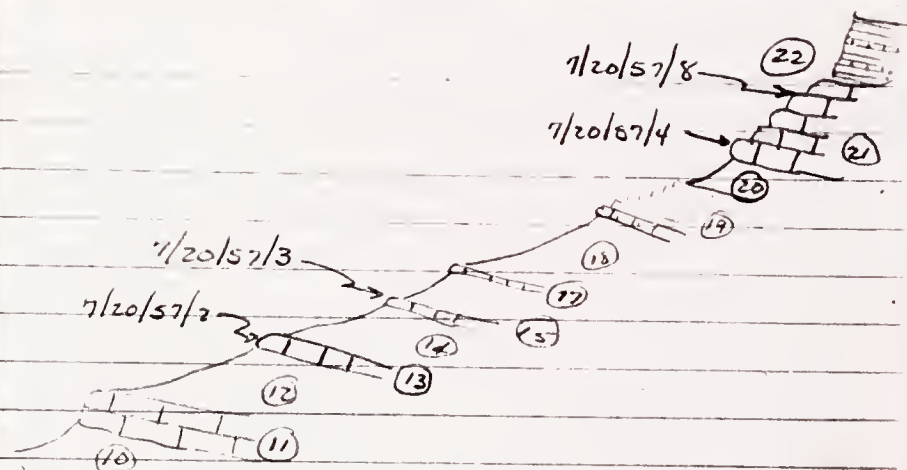 22
7/20/57/8
7/20/57/4
21
20
19
7/20/57/3
18
17
7/20/57/2
15
14
13
12
11
10